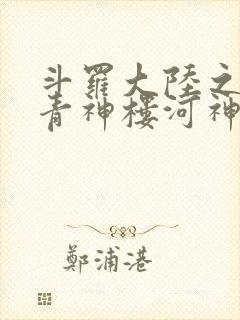 斗羅大陸之
青神樓河神
鄭浦港